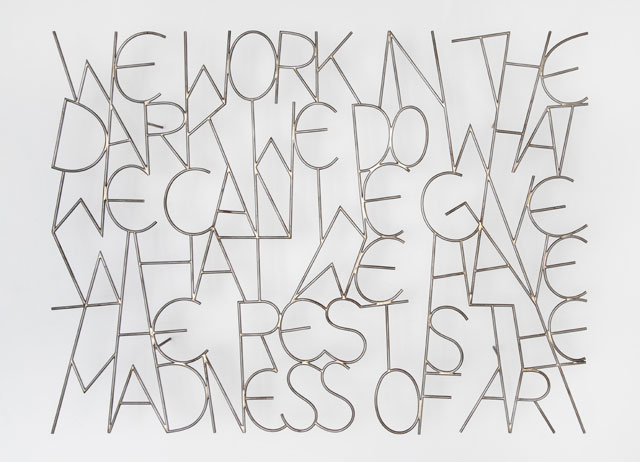 WE WORK IN THE
DARK WE DO WHAT
WE CAN WE GIVE
WHAT WE HAVE
THE REST IS THE
MADNESS OF ART